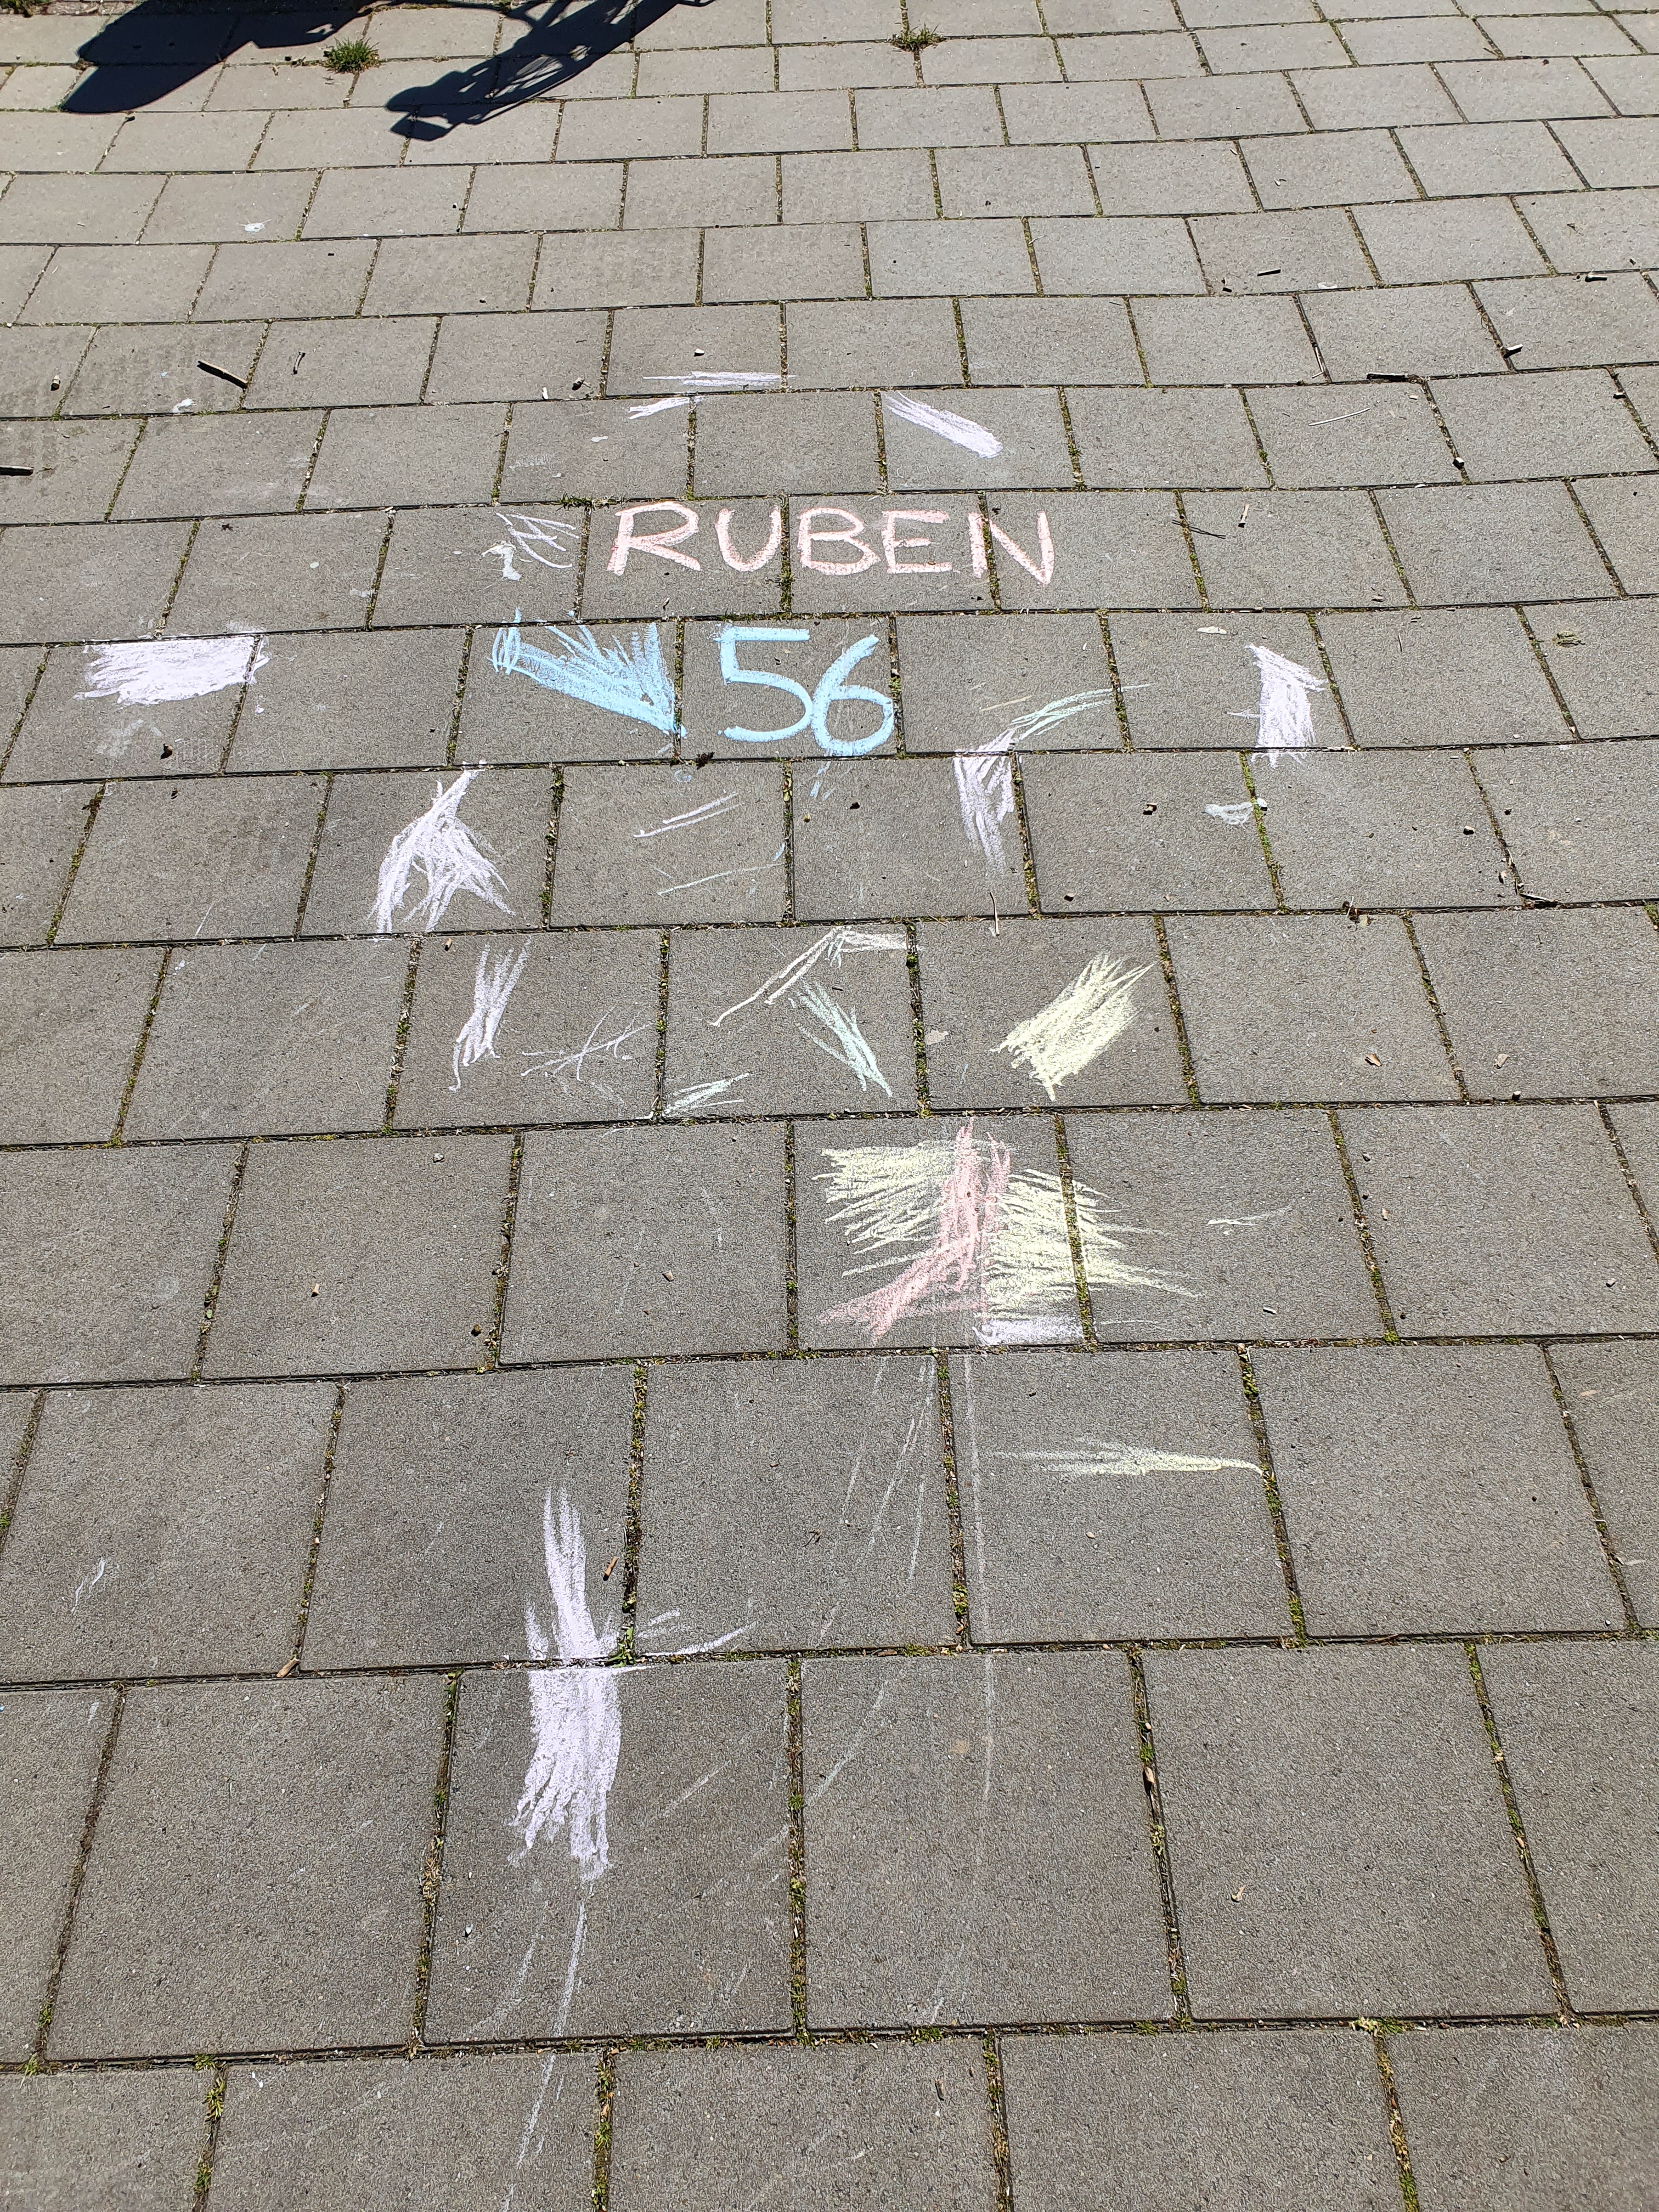 RUBEN
56